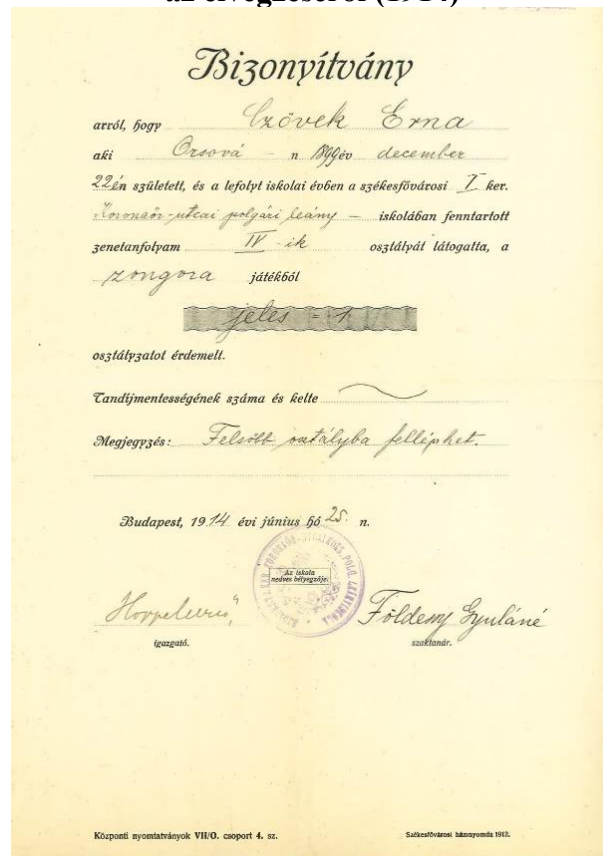 az elvégzéséről (1914)
Bizonyítvány
arról, hogy Czövek Erna
aki Orsová - n 1899 év december
22 én született, és a lefolyt iskolai évben a székesfővárosi I ker.
Koronaőr-utcai polgári leány - iskolában fenntartott
zenetanfolyam IV - ik osztályát látogatta, a
zongora játékból
jeles = 1.
osztályzatot érdemelt.
Tandíjmentességének száma és kelte
Megjegyzés: Felsőbb osztályba felléphet.
Budapest, 1914 évi június hó 25. n.
Az iskola
nedves bélyegzője.
Földessy Gyuláné
igazgató. szaktanár.
Központi nyomtatványok VII/O. csoport 4. sz. Székesfővárosi házinyomda 1912.